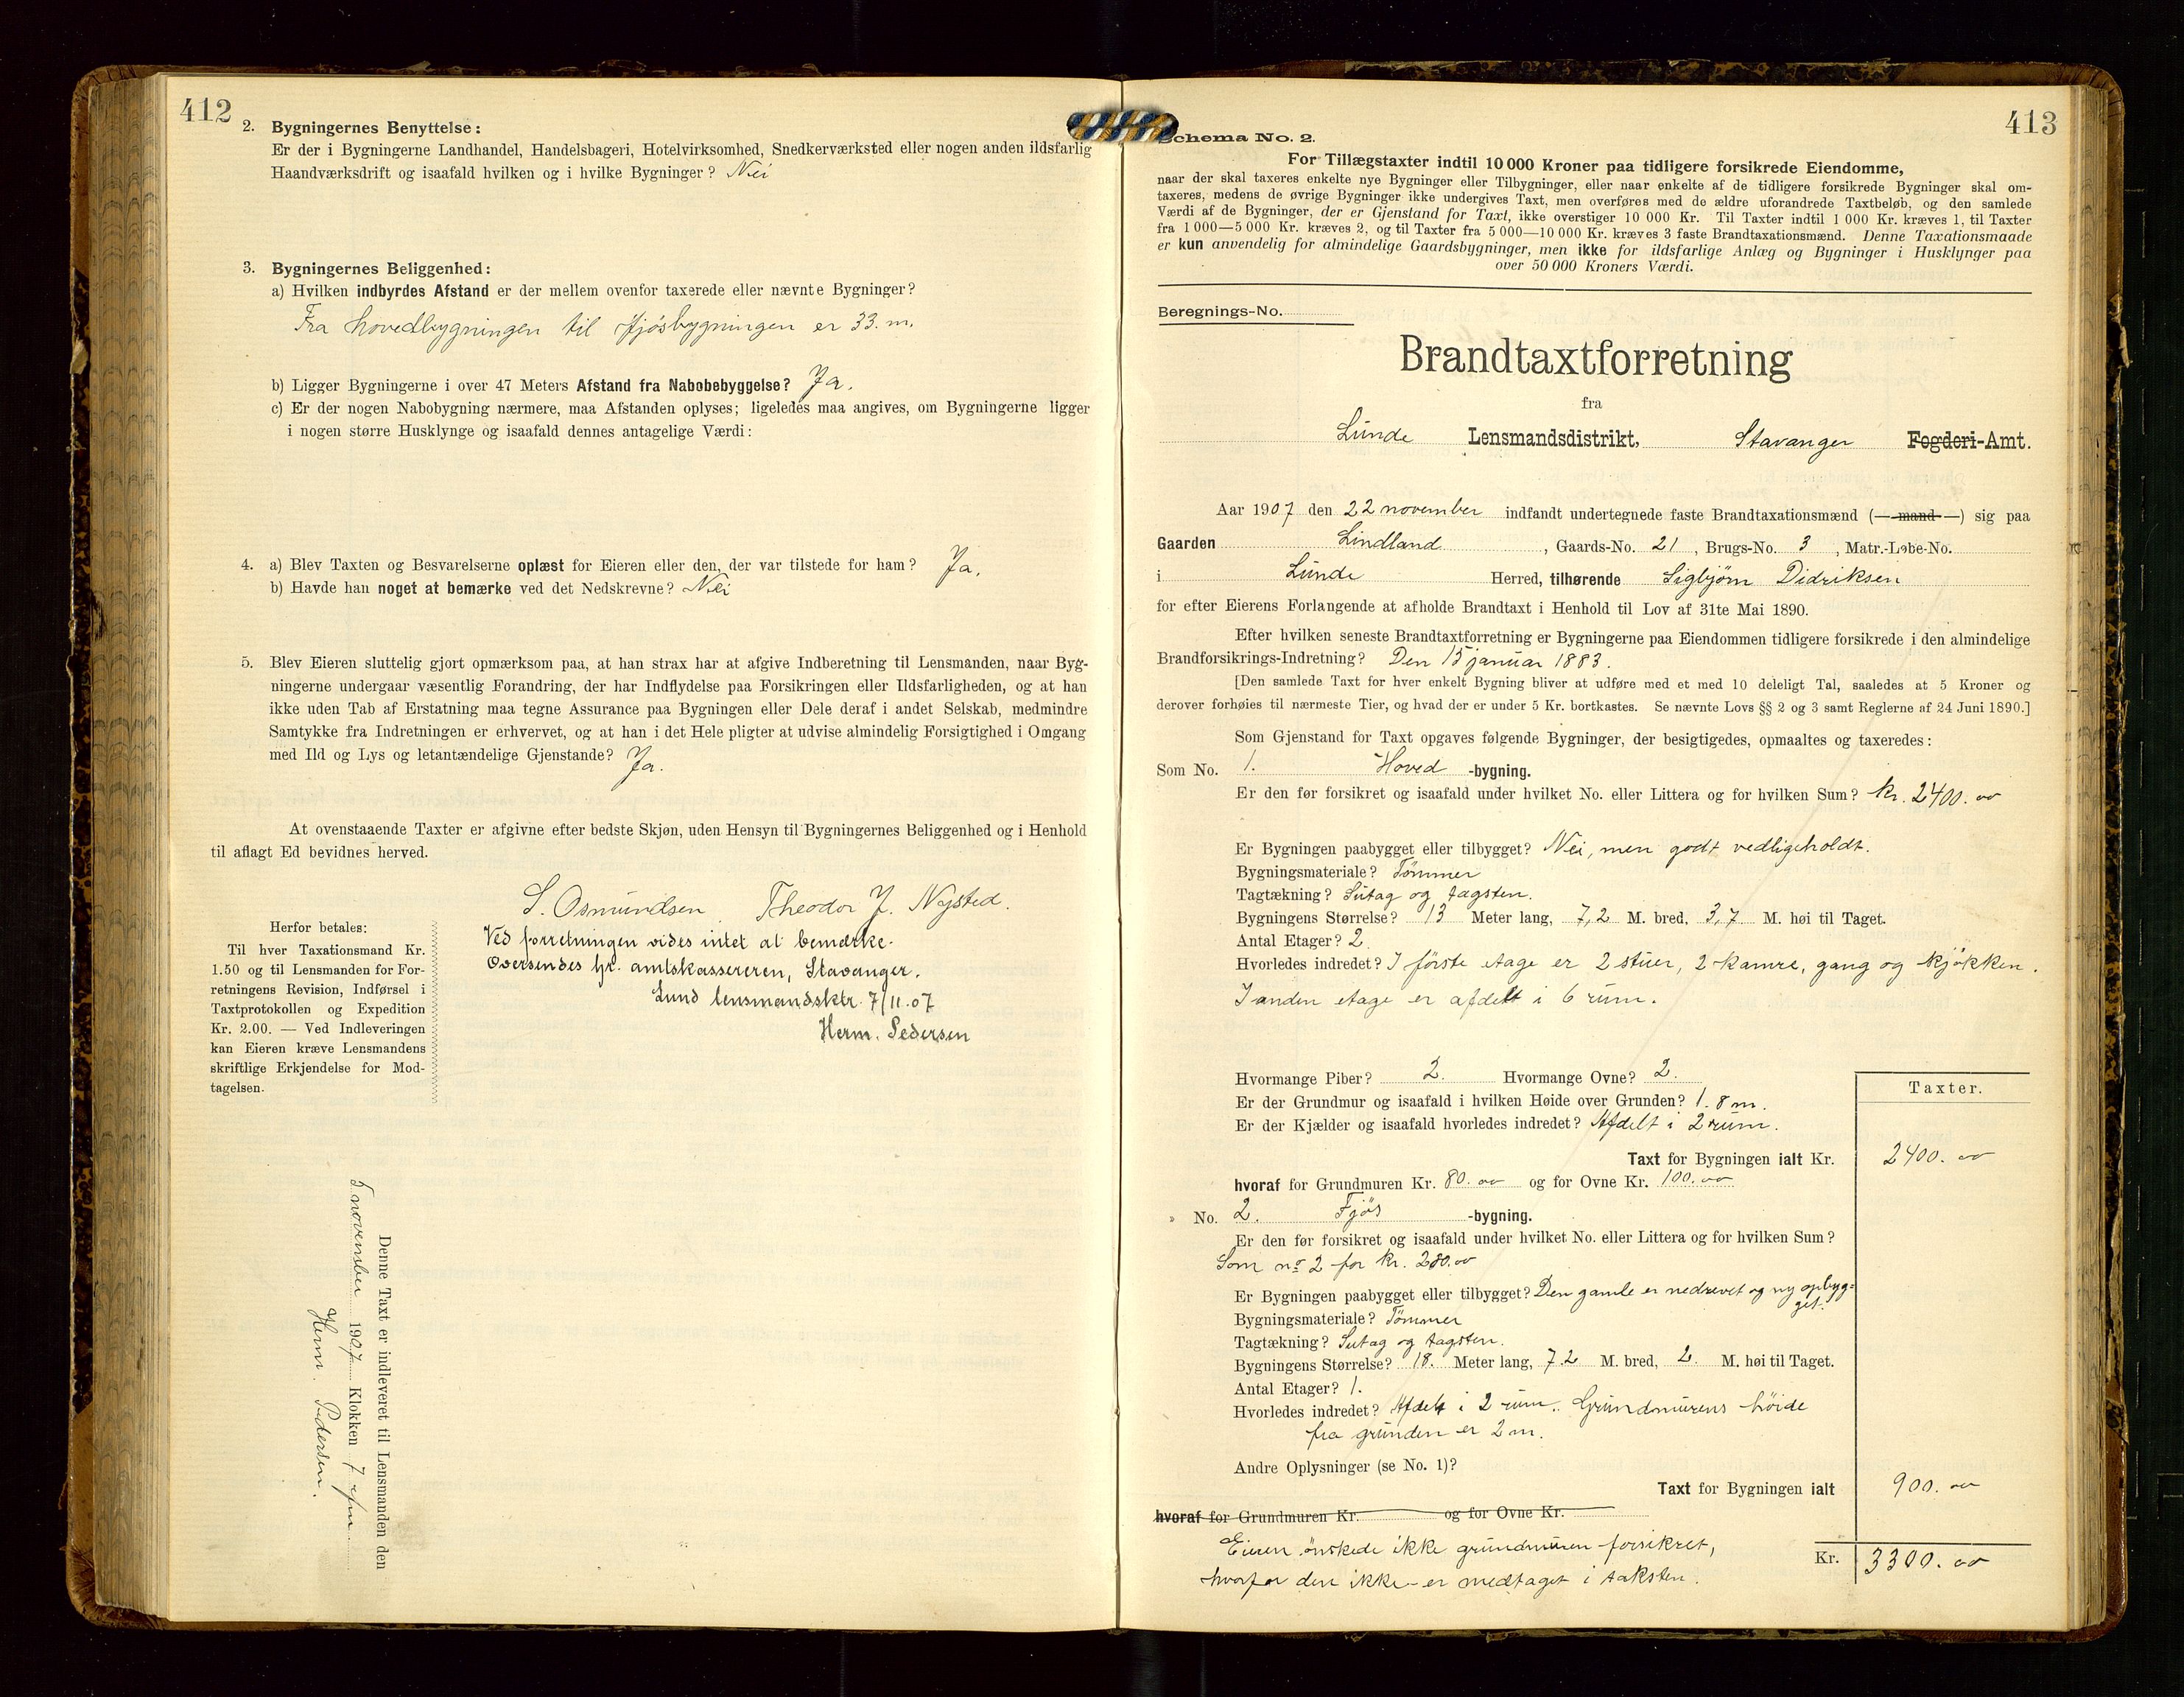 412
2. Bygningernes Benyttelse:
Er der i Bygningerne Landhandel, Handelsbageri, Hotelvirksomhed, Snedkerværksted eller nogen anden ildsfarlig
Haandværksdrift og isaafald hvilken og i hvilke Bygninger? Nei
3. Bygningernes Beliggenhed:
a) Hvilken indbyrdes Afstand er der mellem ovenfor taxerede eller nævnte Bygninger?
Fra hovedbygningen til fjøsbygningen er 33. m.
b) Ligger Bygningerne i over 47 Meters Afstand fra Nabobebyggelse? Ja.
c) Er der nogen Nabobygning nærmere, maa Afstanden oplyses; ligeledes maa angives, om Bygningerne ligger
i nogen større Husklynge og isaafald dennes antagelige Værdi:
4. a) Blev Taxten og Besvarelserne oplæst for Eieren eller den, der var tilstede for ham? Ja.
b) Havde han noget at bemærke ved det Nedskrevne? Nei
5. Blev Eieren sluttelig gjort opmærksom paa, at han strax har at afgive Indberetning til Lensmanden, naar Byg-
ningerne undergaar væsentlig Forandring, der har Indflydelse paa Forsikringen eller Ildsfarligheden, og at han
ikke uden Tab af Erstatning maa tegne Assurance paa Bygningen eller Dele deraf i andet Selskab, medmindre
Samtykke fra Indretningen er erhvervet, og at han i det Hele pligter at udvise almindelig Forsigtighed i Omgang
med Ild og Lys og letantændelige Gjenstande? Ja.
At ovenstaaende Taxter er afgivne efter bedste Skjøn, uden Hensyn til Bygningernes Beliggenhed og i Henhold
til aflagt Ed bevidnes herved.
S. Osmundsen. Theodor J. Nysted.
Ved forretningen vides intet at bemærke.
Oversendes hr. amtskassereren, Stavanger.
Lund lensmandsktr. 7/11.07
Herm. Pedersen
Herfor betales:
Til hver Taxationsmand Kr.
1.50 og til Lensmanden for For-
retningens Revision, Indførsel i
Taxtprotokollen og Expedition
Kr. 2.00. — Ved Indleveringen
kan Eieren kræve Lensmandens
skriftlige Erkjendelse for Mod-
tagelsen.
Denne Taxt er indleveret til Lensmanden den
5 november 1907 Klokken 7 efm.
Herm. Pedersen.
413
Schema No. 2.
For Tillægstaxter indtil 10 000 Kroner paa tidligere forsikrede Eiendomme,
naar der skal taxeres enkelte nye Bygninger eller Tilbygninger, eller naar enkelte af de tidligere forsikrede Bygninger skal om-
taxeres, medens de øvrige Bygninger ikke undergives Taxt, men overføres med de ældre uforandrede Taxtbeløb, og den samlede
Værdi af de Bygninger, der er Gjenstand for Taxt, ikke overstiger 10 000 Kr. Til Taxter indtil 1 000 Kr. kræves 1, til Taxter
fra 1 000—5 000 Kr. kræves 2, og til Taxter fra 5 000—10 000 Kr. kræves 3 faste Brandtaxationsmænd. Denne Taxationsmaade
er kun anvendelig for almindelige Gaardsbygninger, men ikke for ildsfarlige Anlæg og Bygninger i Husklynger paa
over 50 000 Kroners Værdi.
Beregnings-No.
Brandtaxtforretning
fra
Lunde Lensmandsdistrikt, Stavanger Fogderi-Amt.
Aar 1907 den 22 november indfandt undertegnede faste Brandtaxationsmænd (— mand —) sig paa
Gaarden Lindland, Gaards-No. 21, Brugs-No. 3, Matr.-Løbe-No.
i Lunde Herred, tilhørende Sigbjørn Didriksen
for efter Eierens Forlangende at afholde Brandtaxt i Henhold til Lov af 31te Mai 1890.
Efter hvilken seneste Brandtaxtforretning er Bygningerne paa Eiendommen tidligere forsikrede i den almindelige
Brandforsikrings-Indretning? Den 15 januar 1883.
[Den samlede Taxt for hver enkelt Bygning bliver at udføre med et med 10 deleligt Tal, saaledes at 5 Kroner og
derover forhøies til nærmeste Tier, og hvad der er under 5 Kr. bortkastes. Se nævnte Lovs §§ 2 og 3 samt Reglerne af 24 Juni 1890.]
Som Gjenstand for Taxt opgaves følgende Bygninger, der besigtigedes, opmaaltes og taxeredes:
Som No. 1. Hoved -bygning.
Er den før forsikret og isaafald under hvilket No. eller Littera og for hvilken Sum? Kr. 2400.00
Er Bygningen paabygget eller tilbygget? Nei, men godt vedligeholdt.
Bygningsmateriale? Tømmer
Tagtækning? Sutag og tagsten.
Bygningens Størrelse? 13 Meter lang, 7,2 M. bred, 3,7 M. høi til Taget.
Antal Etager? 2
Hvorledes indredet? I første etage er 2 stuer, 2 kamre, gang og kjøkken.
I anden etage er afdelt i 6 rum.
Hvormange Piber? 2. Hvormange Ovne? 2.
Taxter.
Er der Grundmur og isaafald i hvilken Høide over Grunden? 1.8 m.
Er der Kjælder og isaafald hvorledes indredet? Afdelt i 2 rum.
Taxt for Bygningen ialt Kr. 2400.00
hvoraf for Grundmuren Kr. 80.00 og for Ovne Kr. 100.00
» No. 2. Fjøs -bygning.
Er den før forsikret og isaafald under hvilket No. eller Littera og for hvilken Sum?
Som no 2 for Kr. 280.00
Er Bygningen paabygget eller tilbygget? Den gamle er nedrevet og ny opbyg=
get.
Bygningsmateriale? Tømmer
Tagtækning? Sutag og tagsten.
Bygningens Størrelse? 18. Meter lang, 7.2 M. bred, 2. M. høi til Taget.
Antal Etager? 1.
Hvorledes indredet? Afdelt i 2 rum. Grundmurens høide
fra grunden er 2 m.
Andre Oplysninger (se No. 1)?
Taxt for Bygningen ialt 900.00
hvoraf for Grundmuren Kr. og for Ovne Kr.
Eieren ønskede ikke grundmuren forsikret,
hvorfor den ikke er medtaget i taksten.
Kr. 3300.00